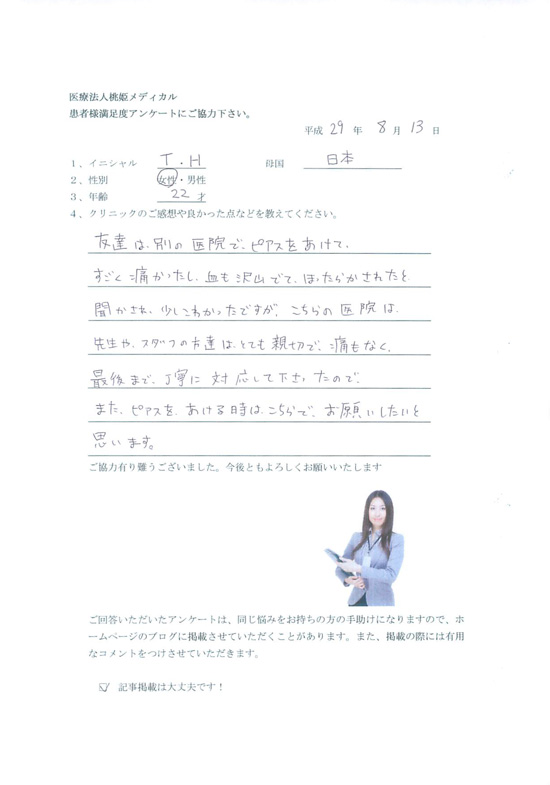 医療法人桃姫メディカル
患者様満足度アンケートにご協力下さい。
平成 29 年 8 月 13 日
1、イニシャル T.H 母国 日本
2、性別 女性・男性
3、年齢 22 才
4、クリニックのご感想や良かった点などを教えてください。
友達は、別の医院で、ピアスをあけて、
すごく痛かったし、血も沢山でて、ほったらかされたと
聞かされ、少しこわかったですが、こちらの医院は、
先生や、スタッフの方達は、とても親切で、痛もなく、
最後まで、丁寧に対応して下さったので、
また、ピアスを、あける時は、こちらで、お願いしたいと
思います。
ご協力有り難うございました。今後ともよろしくお願いいたします
ご回答いただいたアンケートは、同じ悩みをお持ちの方の手助けになりますので、ホ
ームページのブログに掲載させていただくことがあります。また、掲載の際には有用
なコメントをつけさせていただきます。
☑ 記事掲載は大丈夫です！